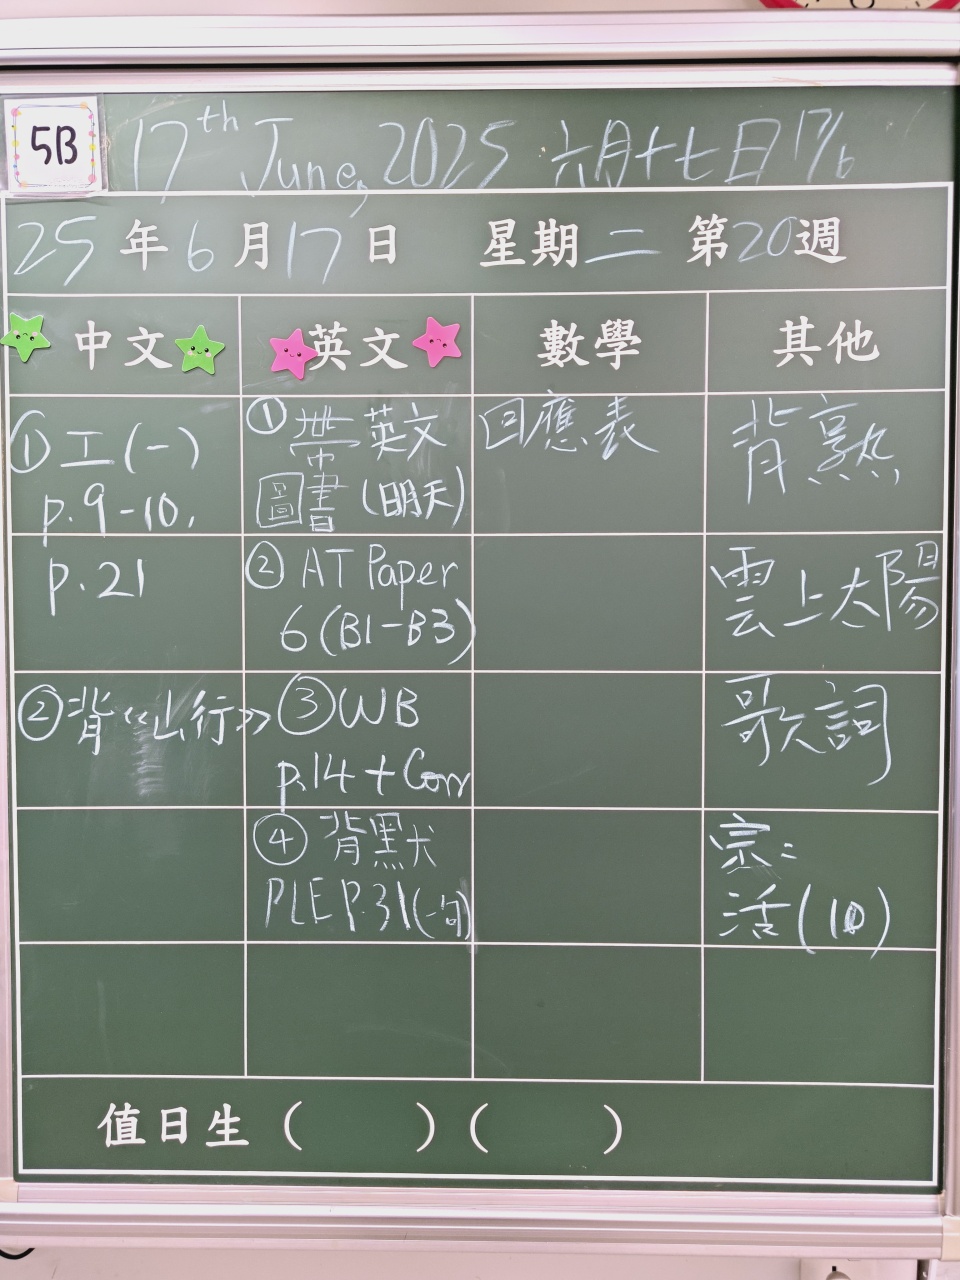 5B
17th June, 2025 六月十七日 17/6
25年6月17日 星期二 第20週
中文 英文 數學 其他
①工(一)
p.9-10,
p.21
②背《山行》
①帶英文
圖書(明天)
②AT Paper
6(B1-B3)
③WB
p.14+Corr
④背默
PLE P.31(一句)
回應表
背熟
雲上太陽
歌詞
宗:
活(10)
值日生( )( )